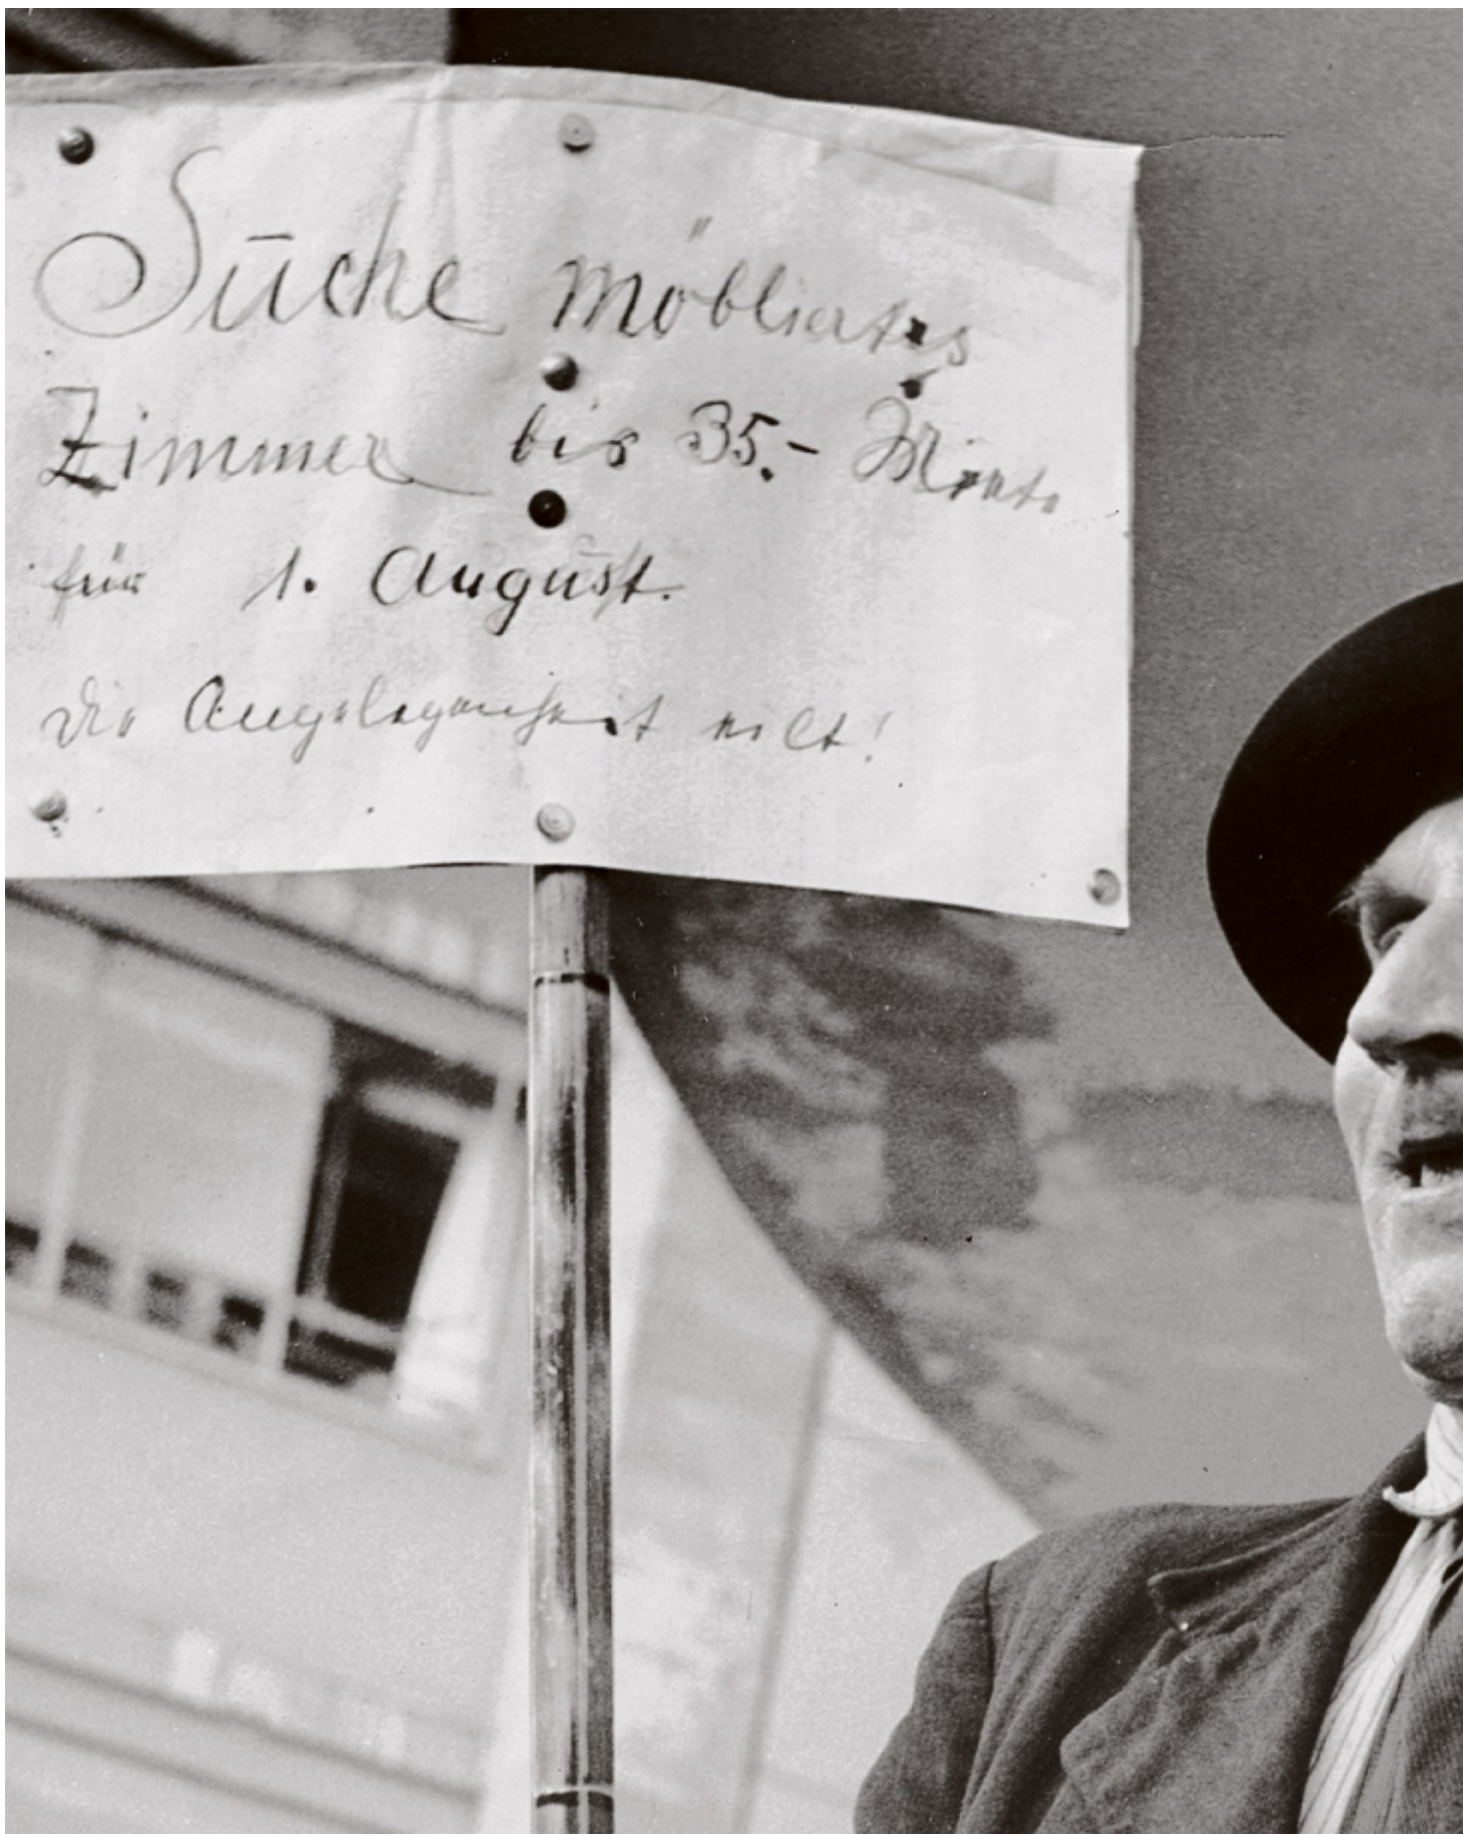 Suche möbliertes
Zimmer bis 35.- Miete
für 1. August.
Die Angelegenheit eilt!